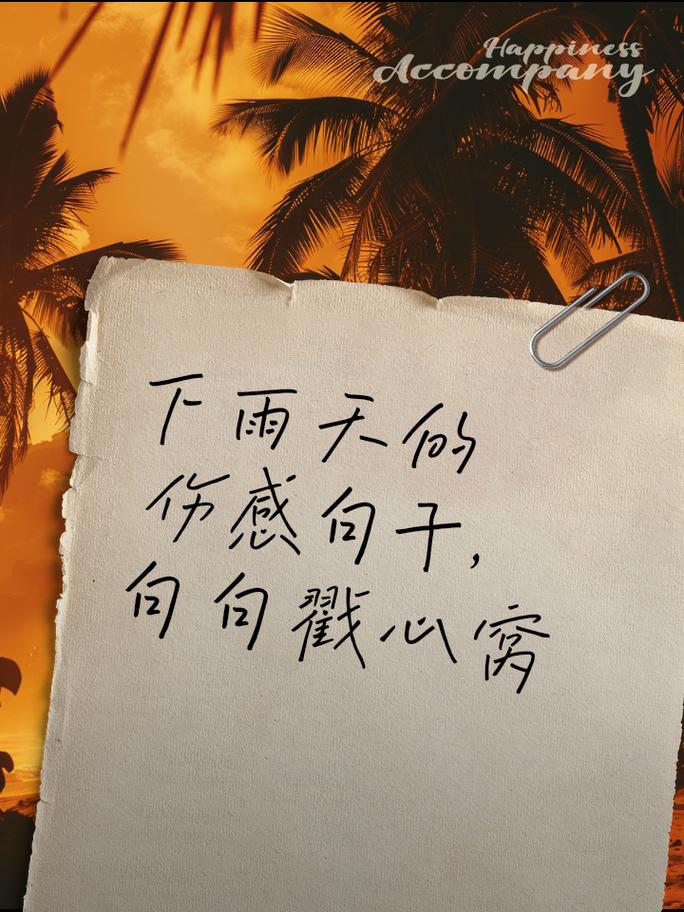 Happiness
Accompany
下雨天的
伤感句子，
句句戳心窝